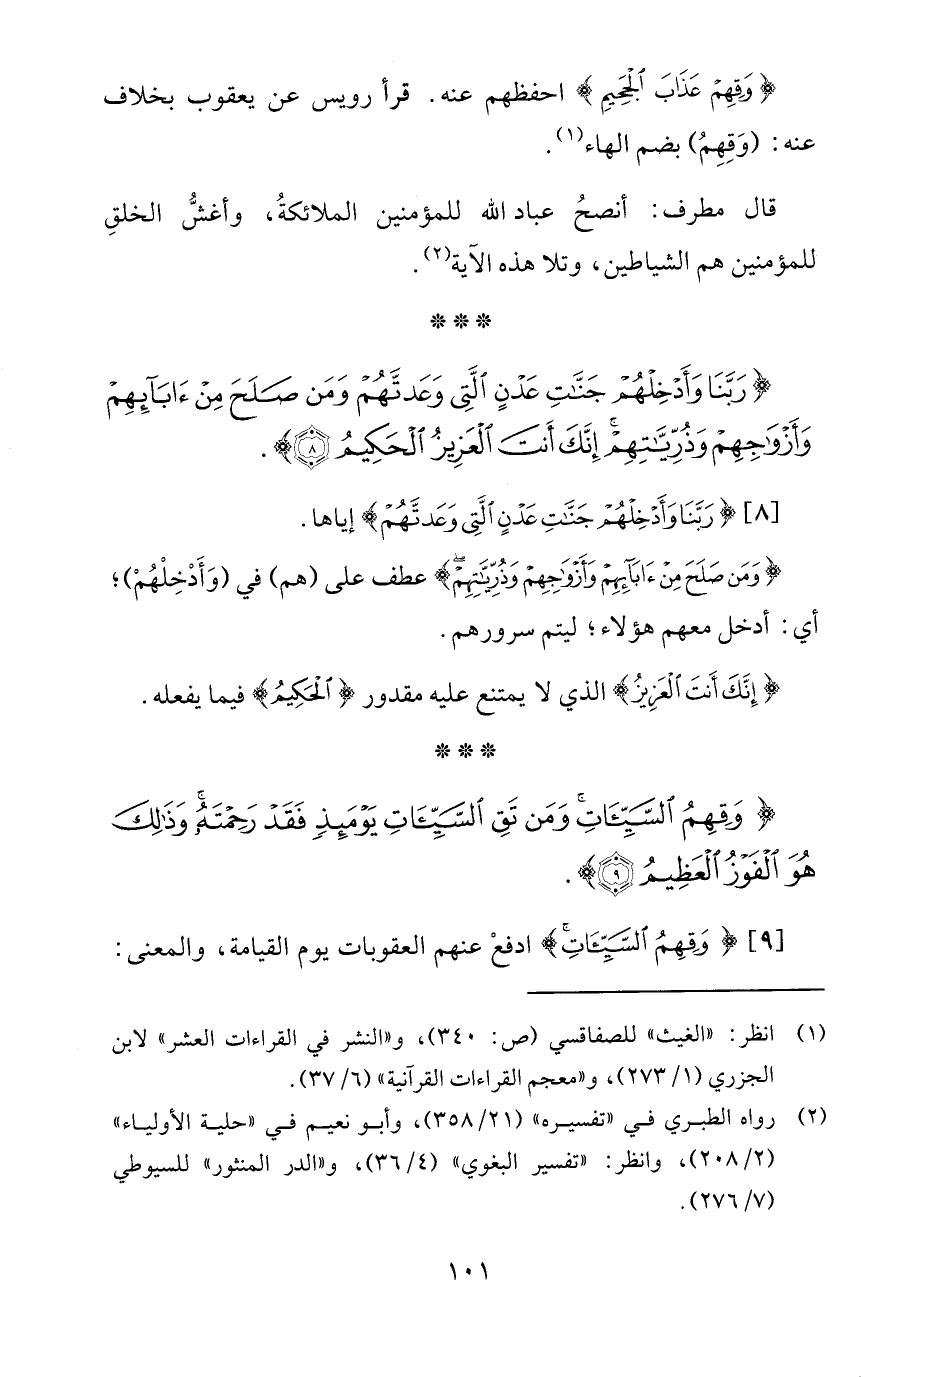 ﴿ وَقِهِمْ عَذَابَ ٱلْجَحِيمِ ﴾ احفظهم عنه. قرأ رويس عن يعقوب بخلاف
عنه: (وَقِهِمُ) بضم الهاء(١).
قال مطرف: أنصحُ عباد الله للمؤمنين الملائكةُ، وأغشُّ الخلقِ
للمؤمنين هم الشياطين، وتلا هذه الآية(٢).
* * *
﴿ رَبَّنَا وَأَدْخِلْهُمْ جَنَّٰتِ عَدْنٍ ٱلَّتِى وَعَدتَّهُمْ وَمَن صَلَحَ مِنْ ءَابَآئِهِمْ
وَأَزْوَٰجِهِمْ وَذُرِّيَّٰتِهِمْ ۚ إِنَّكَ أَنتَ ٱلْعَزِيزُ ٱلْحَكِيمُ ٨ ﴾.
[٨] ﴿ رَبَّنَا وَأَدْخِلْهُمْ جَنَّٰتِ عَدْنٍ ٱلَّتِى وَعَدتَّهُمْ ﴾ إياها.
﴿ وَمَن صَلَحَ مِنْ ءَابَآئِهِمْ وَأَزْوَٰجِهِمْ وَذُرِّيَّٰتِهِمْ ۖ ﴾ عطف على (هم) في (وَأَدْخِلْهُمْ)؛
أي: أدخل معهم هؤلاء؛ ليتم سرورهم.
﴿ إِنَّكَ أَنتَ ٱلْعَزِيزُ ﴾ الذي لا يمتنع عليه مقدور ﴿ ٱلْحَكِيمُ ﴾ فيما يفعله.
* * *
﴿ وَقِهِمُ ٱلسَّيِّـَٔاتِ ۚ وَمَن تَقِ ٱلسَّيِّـَٔاتِ يَوْمَئِذٍ فَقَدْ رَحِمْتَهُۥ ۚ وَذَٰلِكَ
هُوَ ٱلْفَوْزُ ٱلْعَظِيمُ ٩ ﴾.
[٩] ﴿ وَقِهِمُ ٱلسَّيِّـَٔاتِ ۚ ﴾ ادفعْ عنهم العقوبات يوم القيامة، والمعنى:
(١) انظر: «الغيث» للصفاقسي (ص: ٣٤٠)، و«النشر في القراءات العشر» لابن
الجزري (١/ ٢٧٣)، و«معجم القراءات القرآنية» (٦/ ٣٧).
(٢) رواه الطبري في «تفسيره» (٢١/ ٣٥٨)، وأبو نعيم في «حلية الأولياء»
(٢/ ٢٠٨)، وانظر: «تفسير البغوي» (٤/ ٣٦)، و«الدر المنثور» للسيوطي
(٧/ ٢٧٦).
١٠١